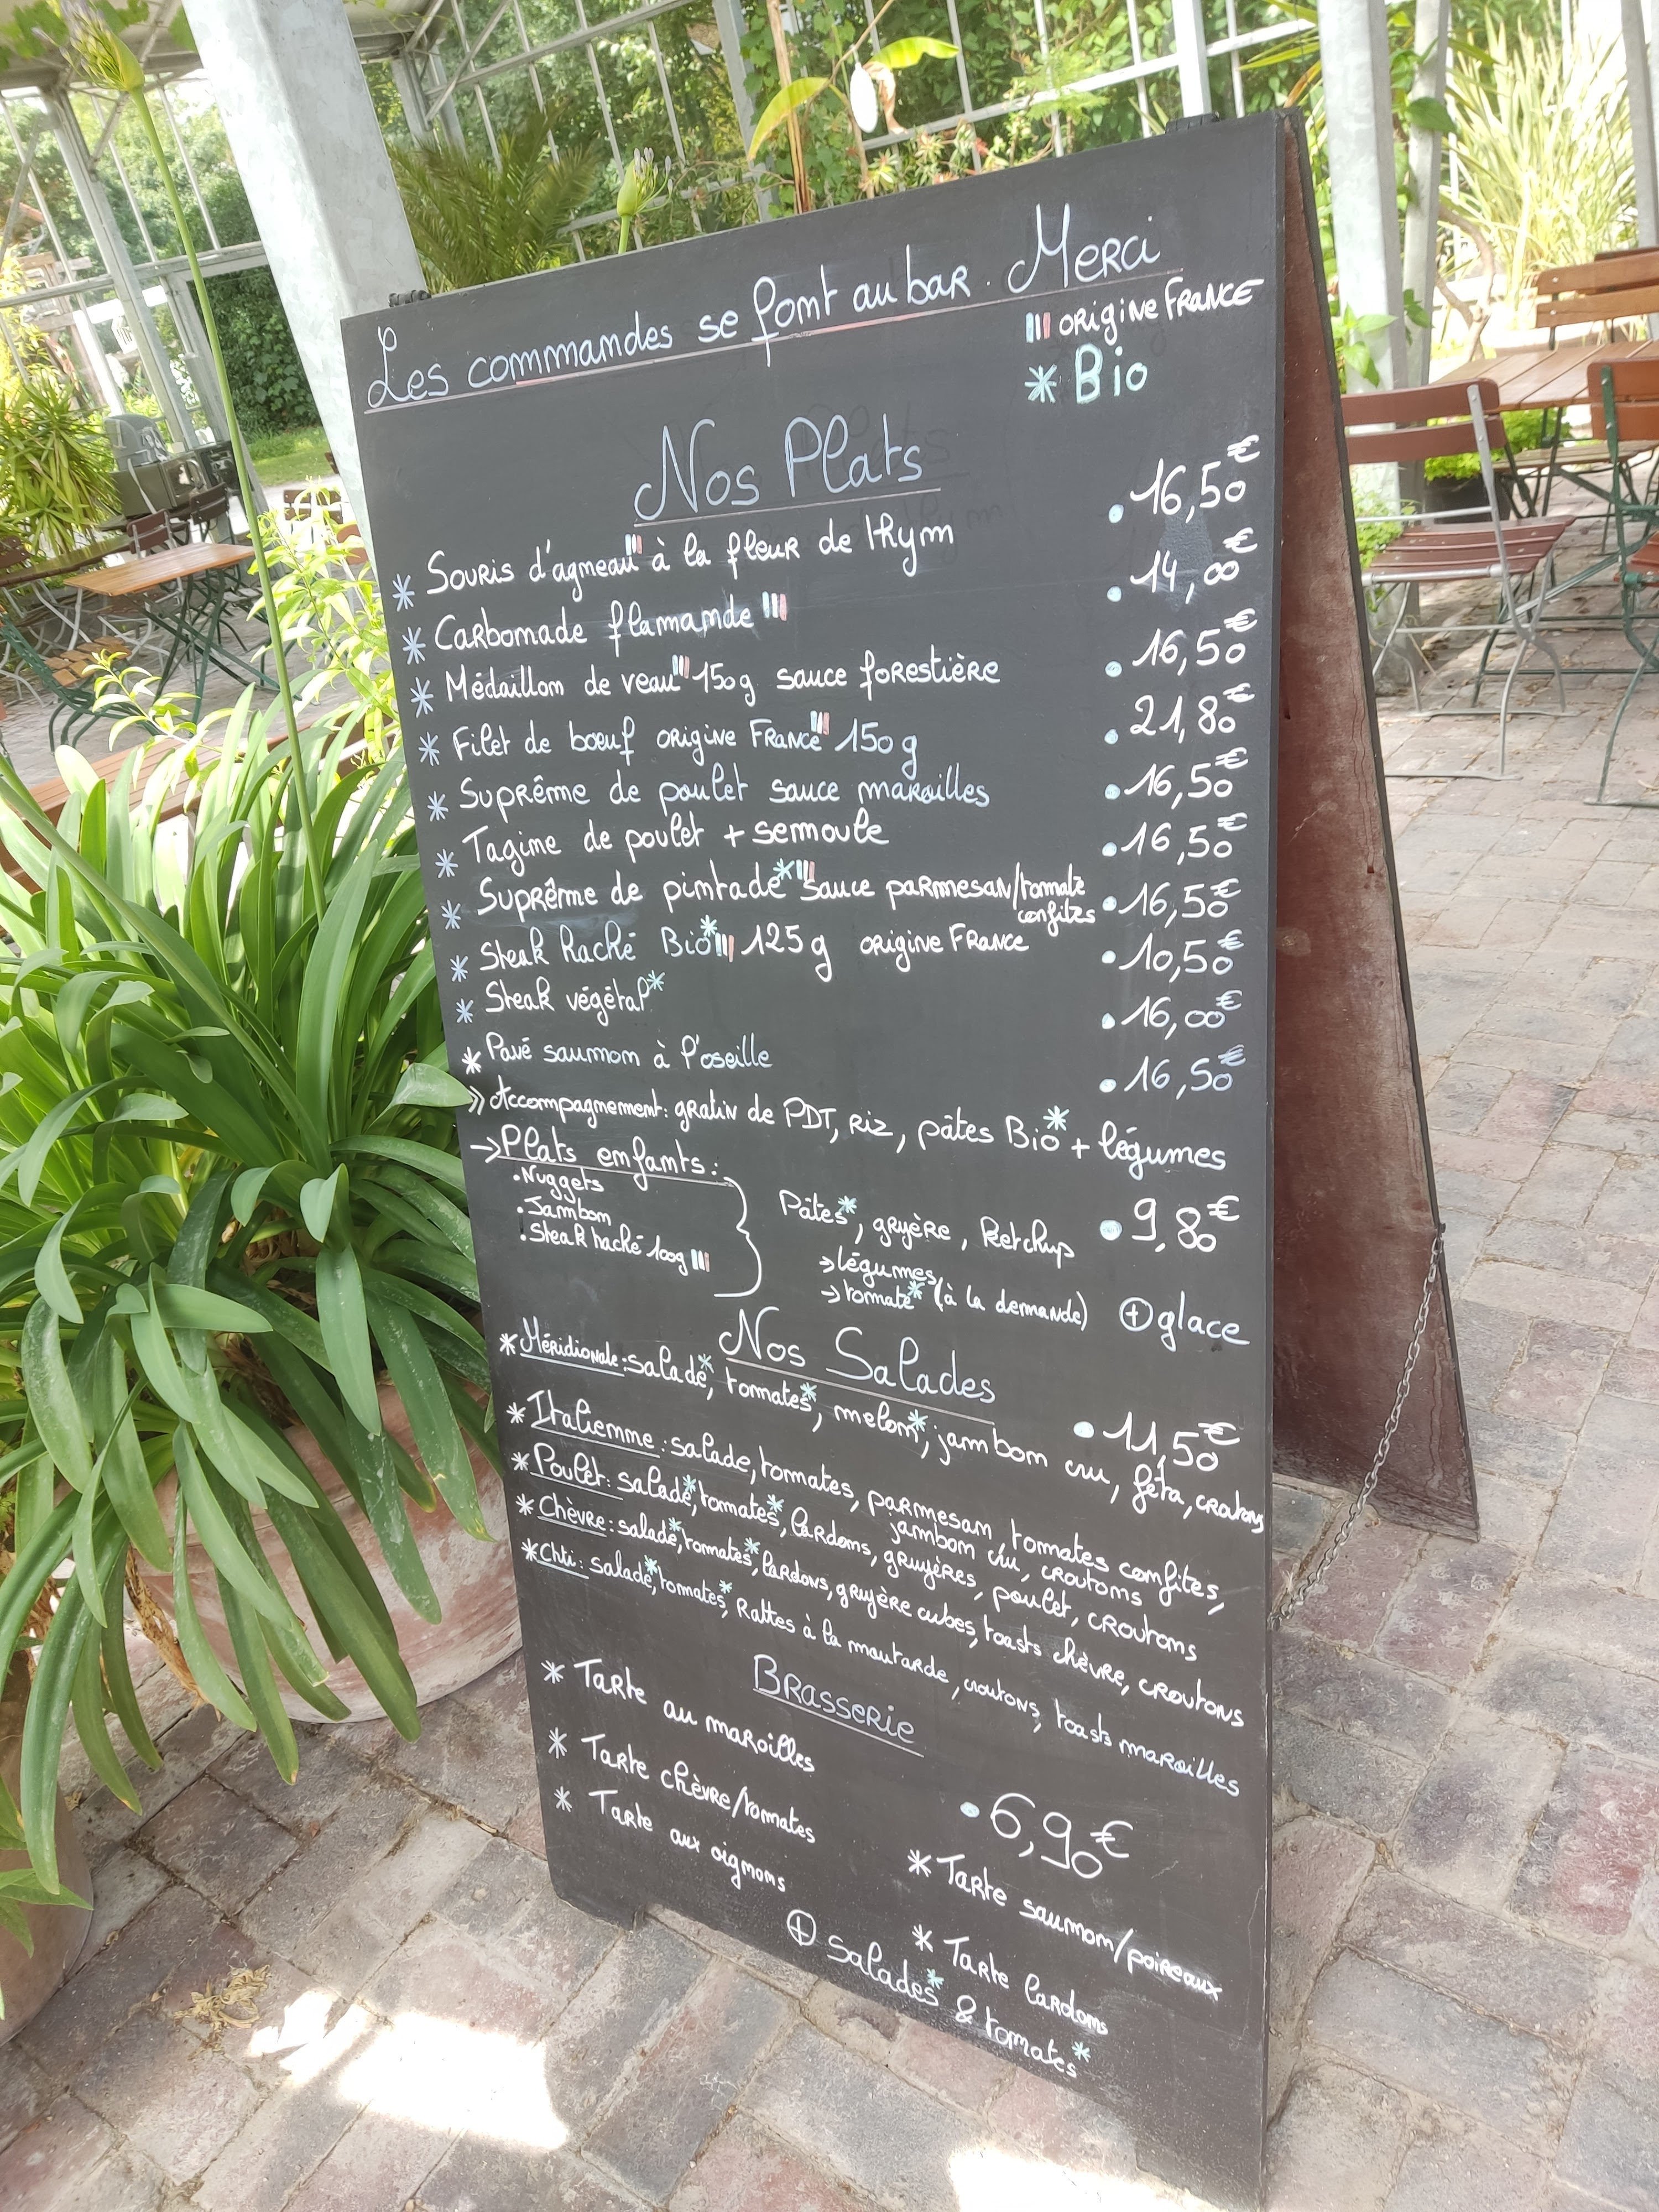 Les commandes se font au bar. Merci
origine France
* Bio
Nos Plats
* Souris d'agneau à la fleur de thym • 16,50€
* Carbonade flamande • 14,00€
* Médaillon de veau 150g sauce forestière • 16,50€
* Filet de bœuf origine France 150g • 21,80€
* Suprême de poulet sauce maroilles • 16,50€
* Tagine de poulet + semoule • 16,50€
* Suprême de pintade* sauce parmesan/tomate confites • 16,50€
* Steak haché Bio* 125g origine France • 10,50€
* Steak végétal* • 16,00€
* Pavé saumon à l'oseille • 16,50€
» Accompagnement: gratin de PDT, riz, pâtes Bio* + légumes
→ Plats enfants:
• Nuggets
• Jambon
• Steak haché 100g
Pâtes*, gruyère, ketchup • 9,80€
→ légumes
→ tomate* (à la demande) ⊕ glace
Nos Salades • 11,50€
* Méridionale: salade*, tomates*, melon*, jambon cru, féta, croutons
* Italienne: salade, tomates, parmesan, tomates confites,
jambon cru, croutons
* Poulet: salade*, tomates*, lardons, gruyères, poulet, croutons
* Chèvre: salade*, tomates*, lardons, gruyère cubes, toasts chèvre, croutons
* Chti: salade*, tomates*, Rattes à la moutarde, croutons, toasts maroilles
Brasserie
* Tarte au maroilles
* Tarte chèvre/tomates
* Tarte aux oignons
• 6,90€
* Tarte saumon/poireaux
* Tarte lardons
⊕ Salades* & tomates*